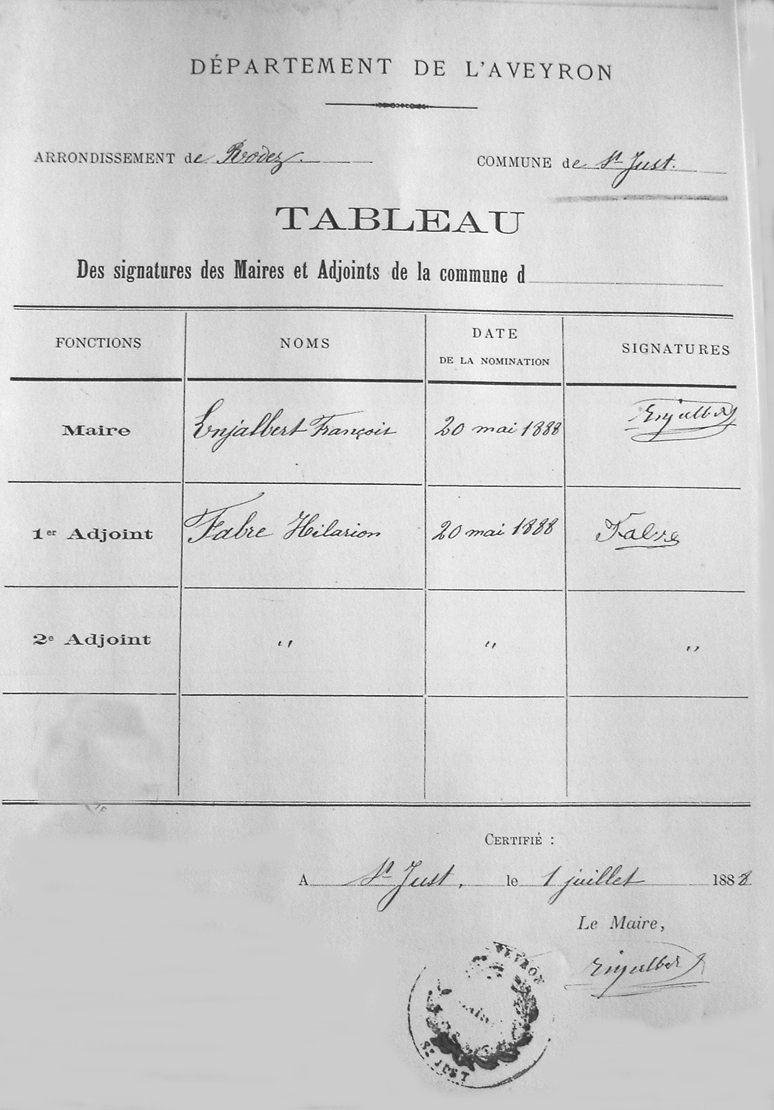 DÉPARTEMENT DE L'AVEYRON
ARRONDISSEMENT de Rodez. COMMUNE de St Just.
TABLEAU
Des signatures des Maires et Adjoints de la commune d
FONCTIONS NOMS DATE DE LA NOMINATION SIGNATURES
Maire Enjalbert François 20 mai 1888 Enjalbert
1er Adjoint Fabre Hilarion 20 mai 1888 Fabre
2e Adjoint " " "
CERTIFIÉ :
A St Just, le 1 juillet 1888
Le Maire,
Enjalbert
AVEYRON
ST JUST